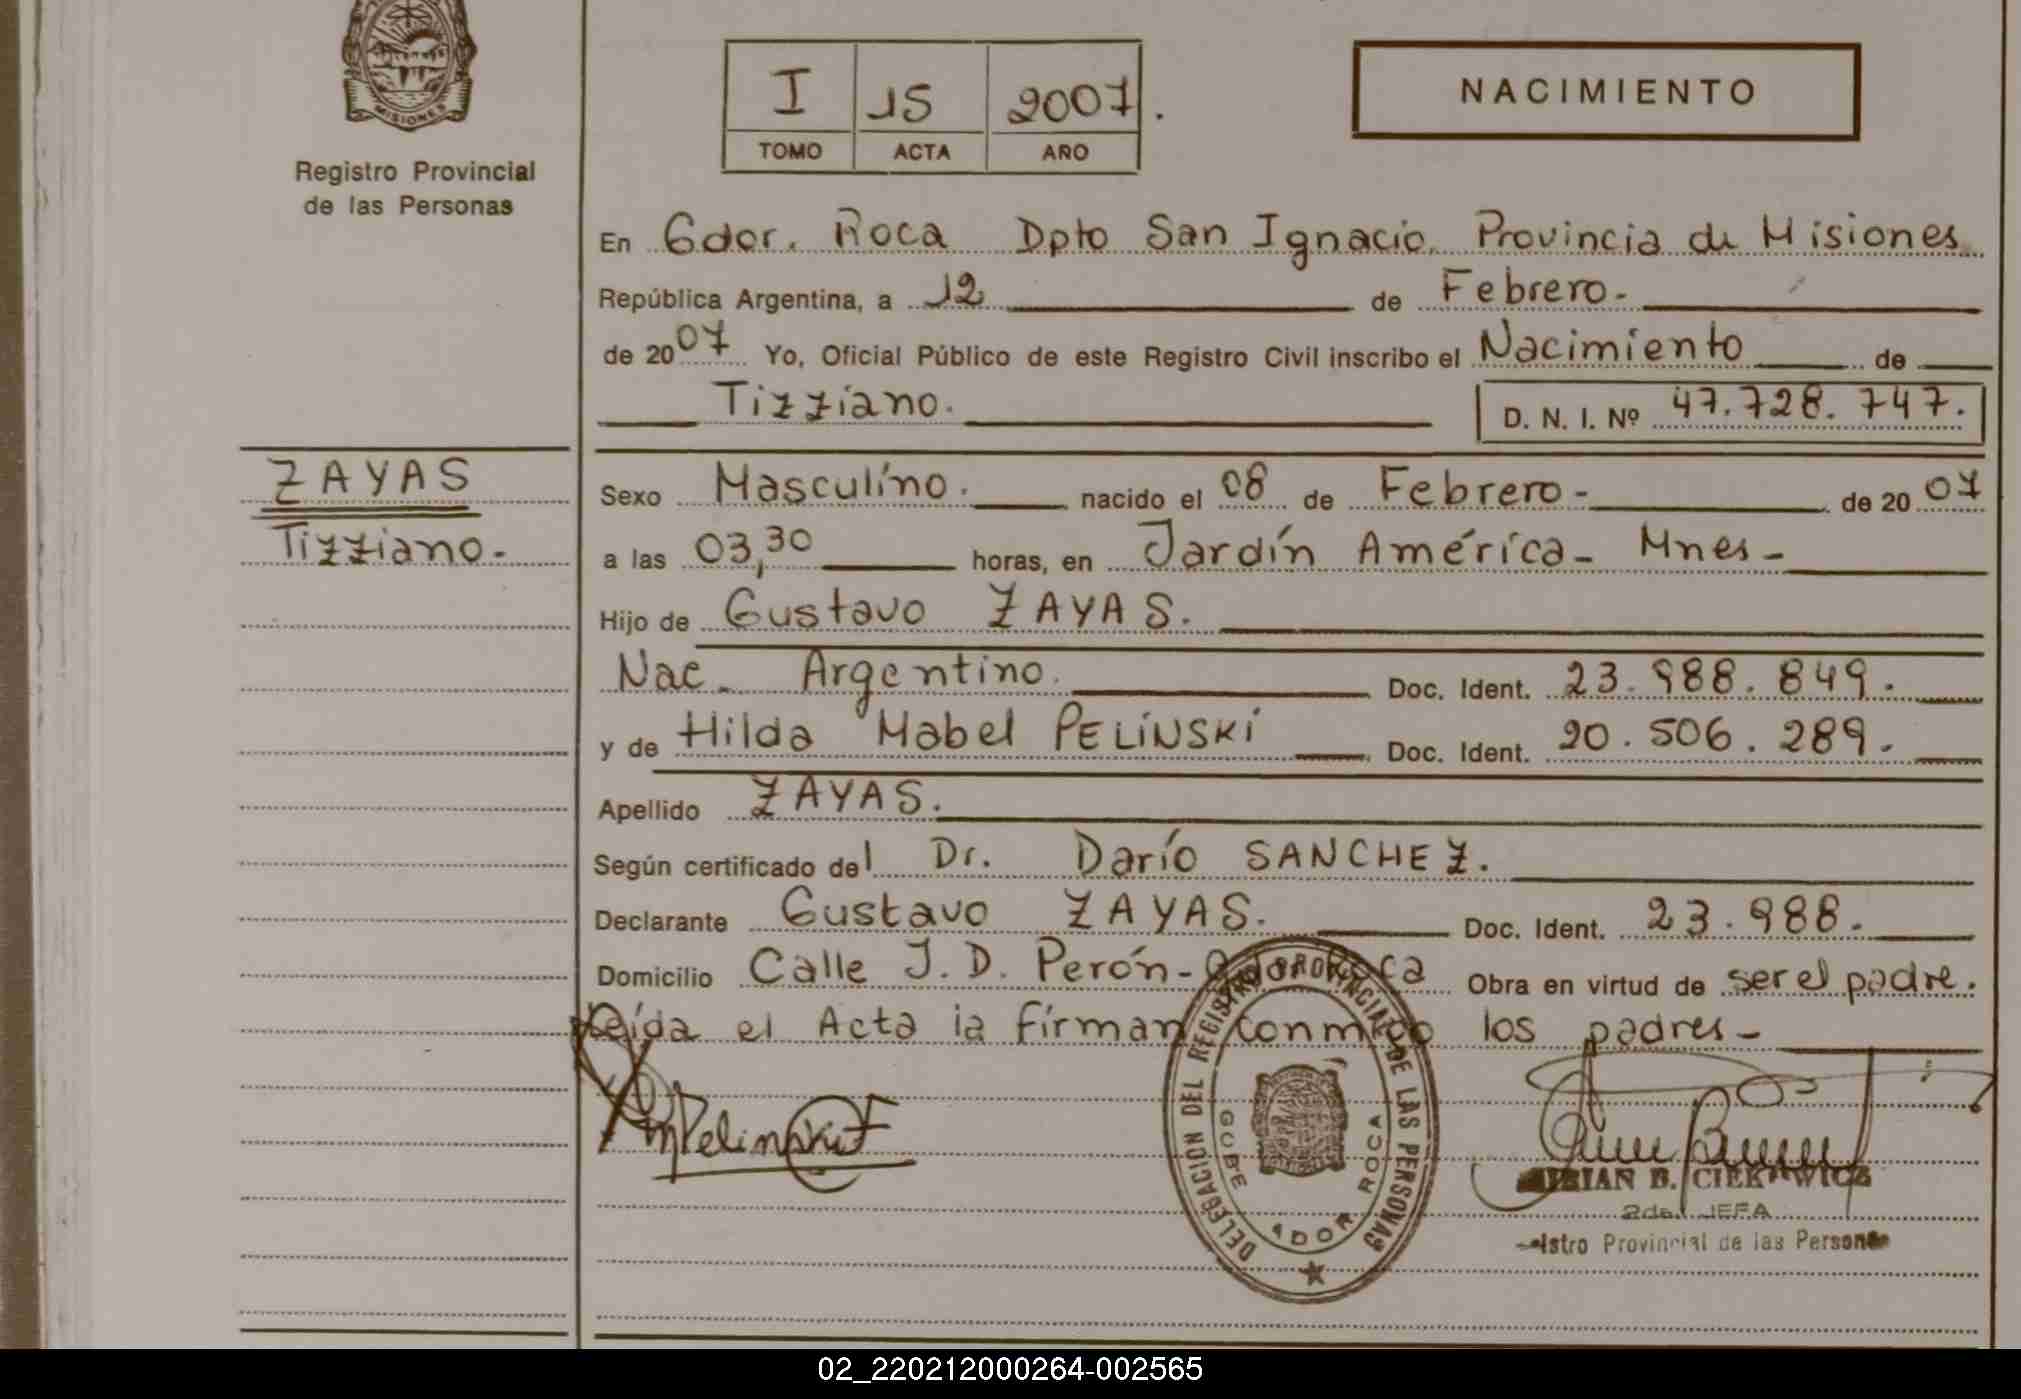 MISIONES
Registro Provincial
de las Personas
I 15 2007.
TOMO ACTA AÑO
NACIMIENTO
En Gdor. Roca Dpto San Ignacio. Provincia de Misiones
República Argentina, a 12 de Febrero.-
de 2007 Yo, Oficial Público de este Registro Civil inscribo el Nacimiento de
Tizziano.
D. N. I. Nº 47.728.747.
ZAYAS
Tizziano.-
Sexo Masculino. nacido el 08 de Febrero- de 2007
a las 03,30 horas, en Jardín América- Mnes-
Hijo de Gustavo ZAYAS.
Nac. Argentino. Doc. Ident. 23.988.849.
y de Hilda Mabel PELINSKI Doc. Ident. 20.506.289.
Apellido ZAYAS.
Según certificado del Dr. Darío SANCHEZ.
Declarante Gustavo ZAYAS. Doc. Ident. 23.988.
Domicilio Calle J.D. Perón- Gdor Roca Obra en virtud de ser el padre.
Leída el Acta la firman conmigo los padres-
DELEGACION DEL REGISTRO PROVINCIAL DE LAS PERSONAS
GOBERNADOR ROCA
Pelinski
B.
2da. JEFA
Provincial de las Personas
02_220212000264-002565